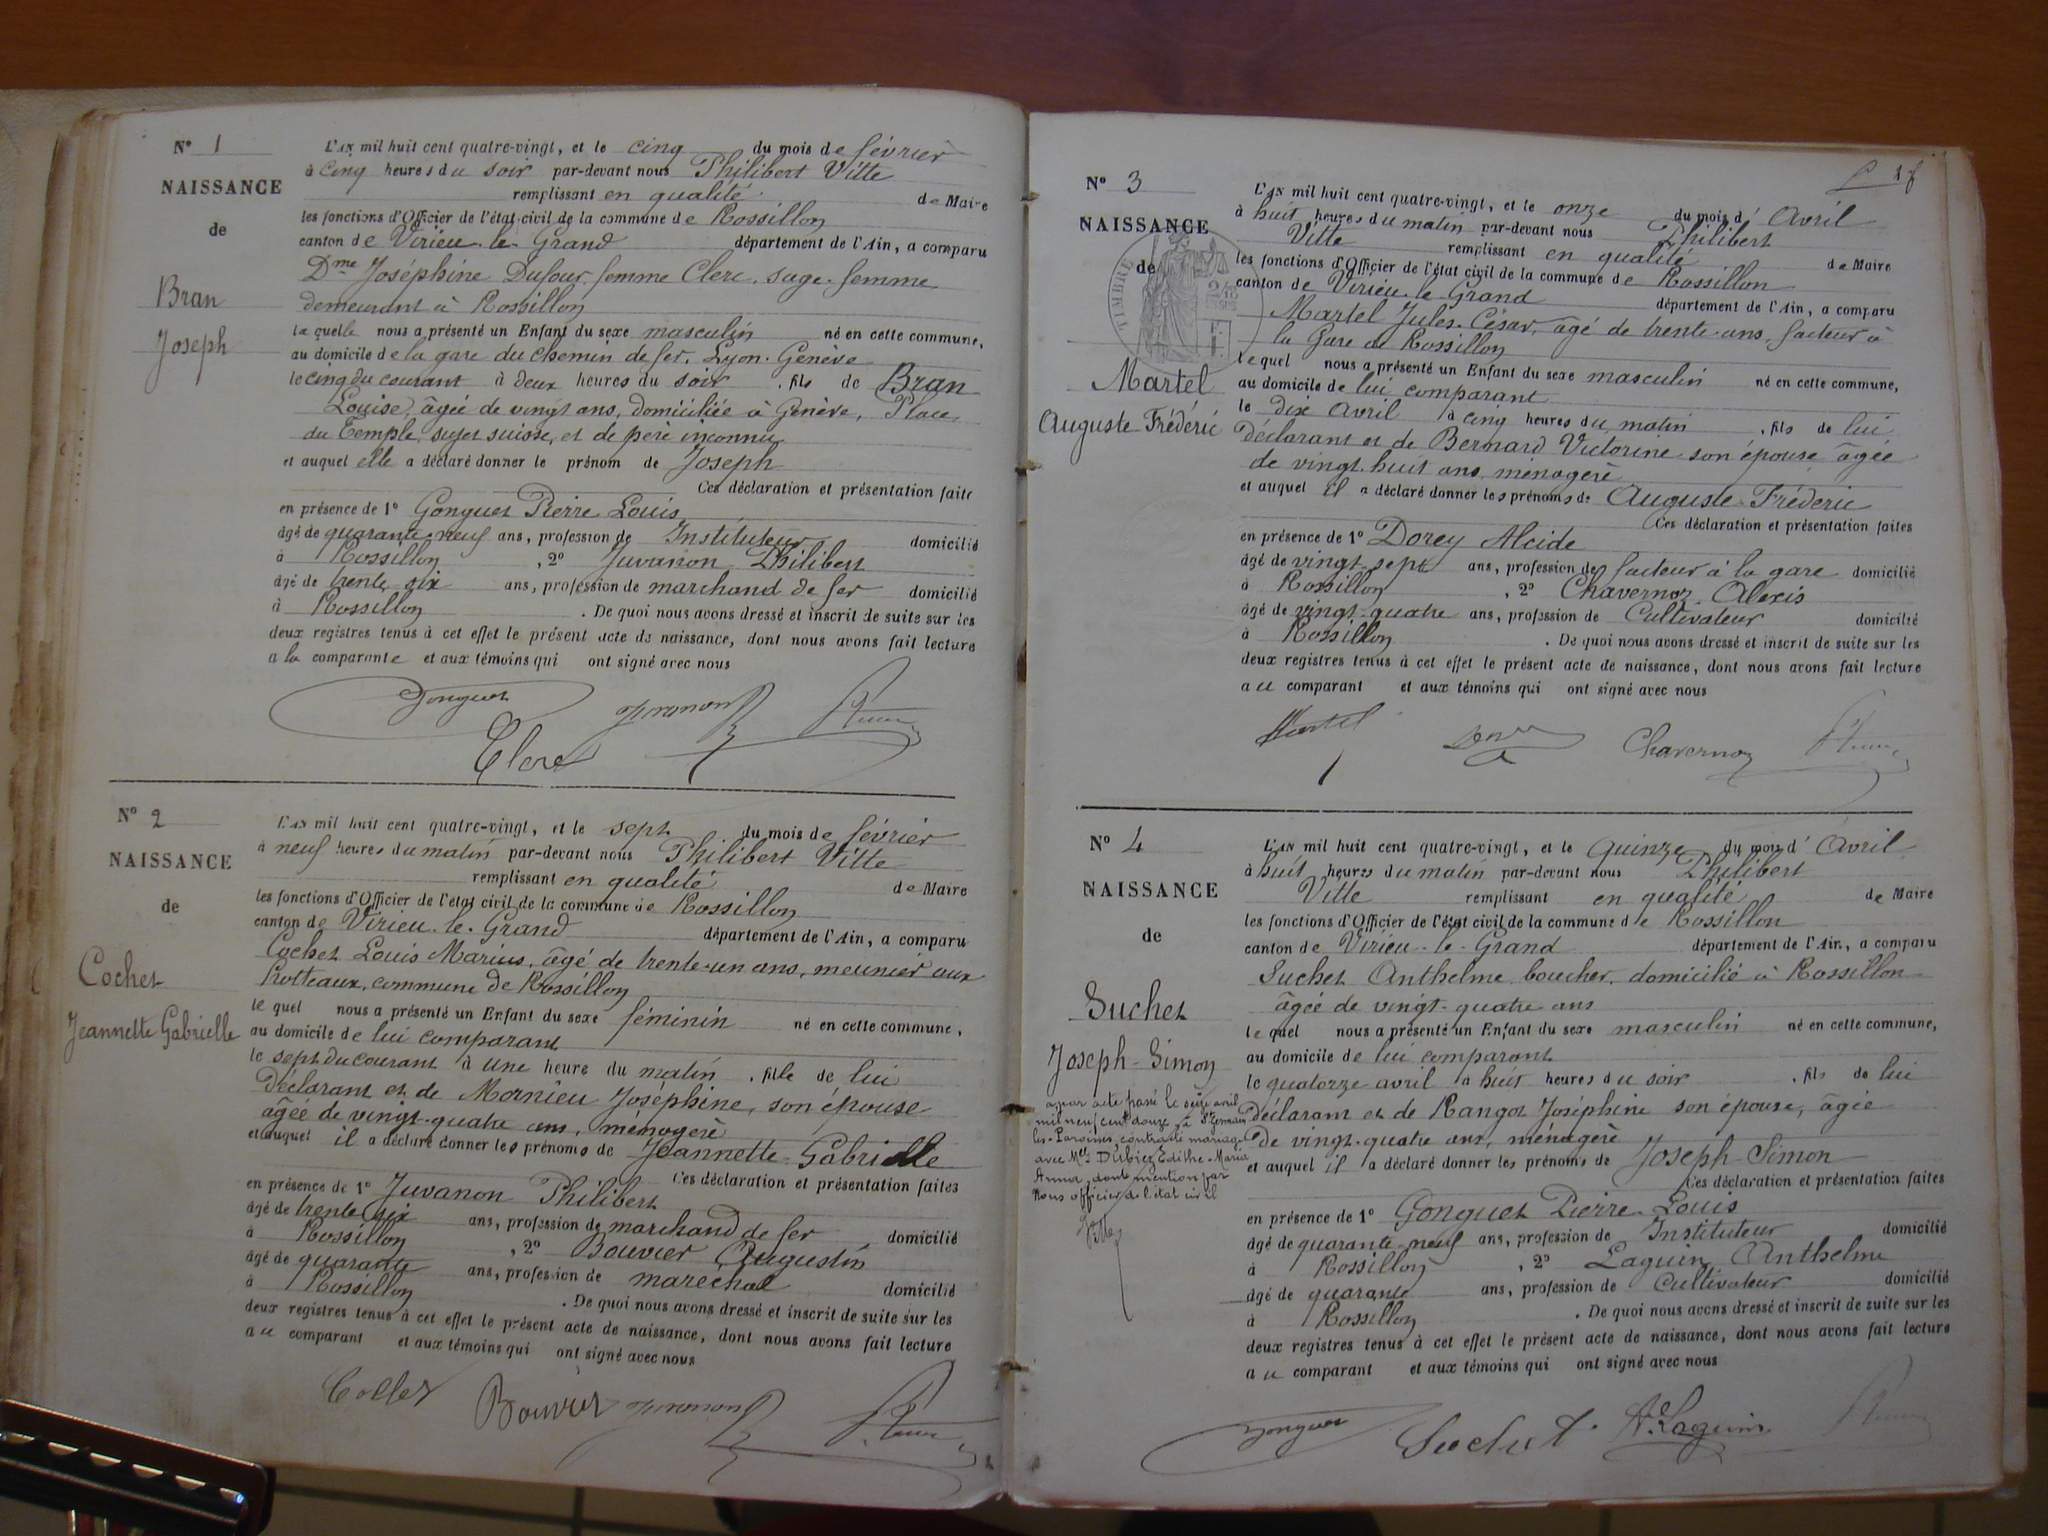 N° 1
NAISSANCE
de
Bran
Joseph
L'AN mil huit cent quatre-vingt, et le cinq du mois de février
à cinq heures du soir par-devant nous Philibert Vitte
remplissant en qualité de Maire
les fonctions d'Officier de l'état civil de la commune de Rossillon
canton de Virieu-le-Grand département de l'Ain, a comparu
Dme Joséphine Dufour femme Clerc, sage-femme
demeurant à Rossillon
la quelle nous a présenté un Enfant du sexe masculin né en cette commune,
au domicile de la gare du chemin de fer, Lyon-Genève
le cinq du courant à deux heures du soir, fils de Bran
Louise, âgée de vingt ans, domiciliée à Genève, Place
du Temple, sujet suisse, et de père inconnu
et auquel elle a déclaré donner le prénom de Joseph
Ces déclaration et présentation faite
en présence de 1° Gonguet Pierre Louis
âgé de quarante-neuf ans, profession de Instituteur domicilié
à Rossillon, 2° Juvanon Philibert
âgé de trente six ans, profession de marchand de fer domicilié
à Rossillon. De quoi nous avons dressé et inscrit de suite sur les
deux registres tenus à cet effet le présent acte de naissance, dont nous avons fait lecture
a la comparante et aux témoins qui ont signé avec nous
Gonguet Juvanon
Clerc
N° 2
NAISSANCE
de
Cochet
Jeannette Gabrielle
L'AN mil huit cent quatre-vingt, et le sept du mois de février
à neuf heures du matin par-devant nous Philibert Vitte
remplissant en qualité de Maire
les fonctions d'Officier de l'état civil de la commune de Rossillon
canton de Virieu-le-Grand département de l'Ain, a comparu
Cochet Louis Marius, âgé de trente-un ans, meunier aux
Rotteaux, commune de Rossillon
le quel nous a présenté un Enfant du sexe féminin né en cette commune,
au domicile de lui comparant
le sept du courant à une heure du matin, fille de lui
déclarant et de Mornieu Joséphine, son épouse
âgée de vingt-quatre ans, ménagère
et auquel il a déclaré donner les prénoms de Jeannette-Gabrielle
Ces déclaration et présentation faites
en présence de 1° Juvanon Philibert
âgé de trente six ans, profession de marchand de fer domicilié
à Rossillon, 2° Bouvier Augustin
âgé de quarante ans, profession de maréchal domicilié
à Rossillon. De quoi nous avons dressé et inscrit de suite sur les
deux registres tenus à cet effet le présent acte de naissance, dont nous avons fait lecture
au comparant et aux témoins qui ont signé avec nous
Bouvier Juvanon
N° 3
NAISSANCE
de
TIMBRE
Martel
Auguste Frédéric
L'AN mil huit cent quatre-vingt, et le onze du mois d'Avril
à huit heures du matin par-devant nous Philibert
Vitte remplissant en qualité de Maire
les fonctions d'Officier de l'état civil de la commune de Rossillon
canton de Virieu-le-Grand département de l'Ain, a comparu
Martel Jules-César, âgé de trente-ans, facteur à
la Gare de Rossillon
le quel nous a présenté un Enfant du sexe masculin né en cette commune,
au domicile de lui comparant
le dix avril à cinq heures du matin, fils de lui
déclarant et de Bernard Victorine son épouse âgée
de vingt-huit ans ménagère
et auquel il a déclaré donner les prénoms de Auguste-Frédéric
Ces déclaration et présentation faites
en présence de 1° Dorey Alcide
âgé de vingt-sept ans, profession de facteur à la gare domicilié
à Rossillon, 2° Chavernoz Alexis
âgé de vingt-quatre ans, profession de Cultivateur domicilié
à Rossillon. De quoi nous avons dressé et inscrit de suite sur les
deux registres tenus à cet effet le présent acte de naissance, dont nous avons fait lecture
au comparant et aux témoins qui ont signé avec nous
Martel Chavernoz
N° 4
NAISSANCE
de
Suchet
Joseph-Simon
par acte passé le seize avril
mil neuf cent douze à St Germain
les-Paroisses, contracté mariage
avec Mlle Dubiez Edithe-Maria
Anna, dont mention par
Nous officier de l'état civil
Vitte
L'AN mil huit cent quatre-vingt, et le Quinze du mois d'Avril
à huit heures du matin par-devant nous Philibert
Vitte remplissant en qualité de Maire
les fonctions d'Officier de l'état civil de la commune de Rossillon
canton de Virieu-le-Grand département de l'Ain, a comparu
Suchet Anthelme boucher, domicilié à Rossillon
âgée de vingt-quatre ans
le quel nous a présenté un Enfant du sexe masculin né en cette commune,
au domicile de lui comparant
le quatorze avril à huit heures du soir, fils de lui
déclarant et de Rangot Joséphine son épouse, âgée
de vingt-quatre ans, ménagère
et auquel il a déclaré donner les prénoms de Joseph Simon
Ces déclaration et présentation faites
en présence de 1° Gonguet Pierre-Louis
âgé de quarante-neuf ans, profession de Instituteur domicilié
à Rossillon, 2° Laguin Anthelme
âgé de quarante ans, profession de Cultivateur domicilié
à Rossillon. De quoi nous avons dressé et inscrit de suite sur les
deux registres tenus à cet effet le présent acte de naissance, dont nous avons fait lecture
au comparant et aux témoins qui ont signé avec nous
Gonguet Suchet A. Laguin